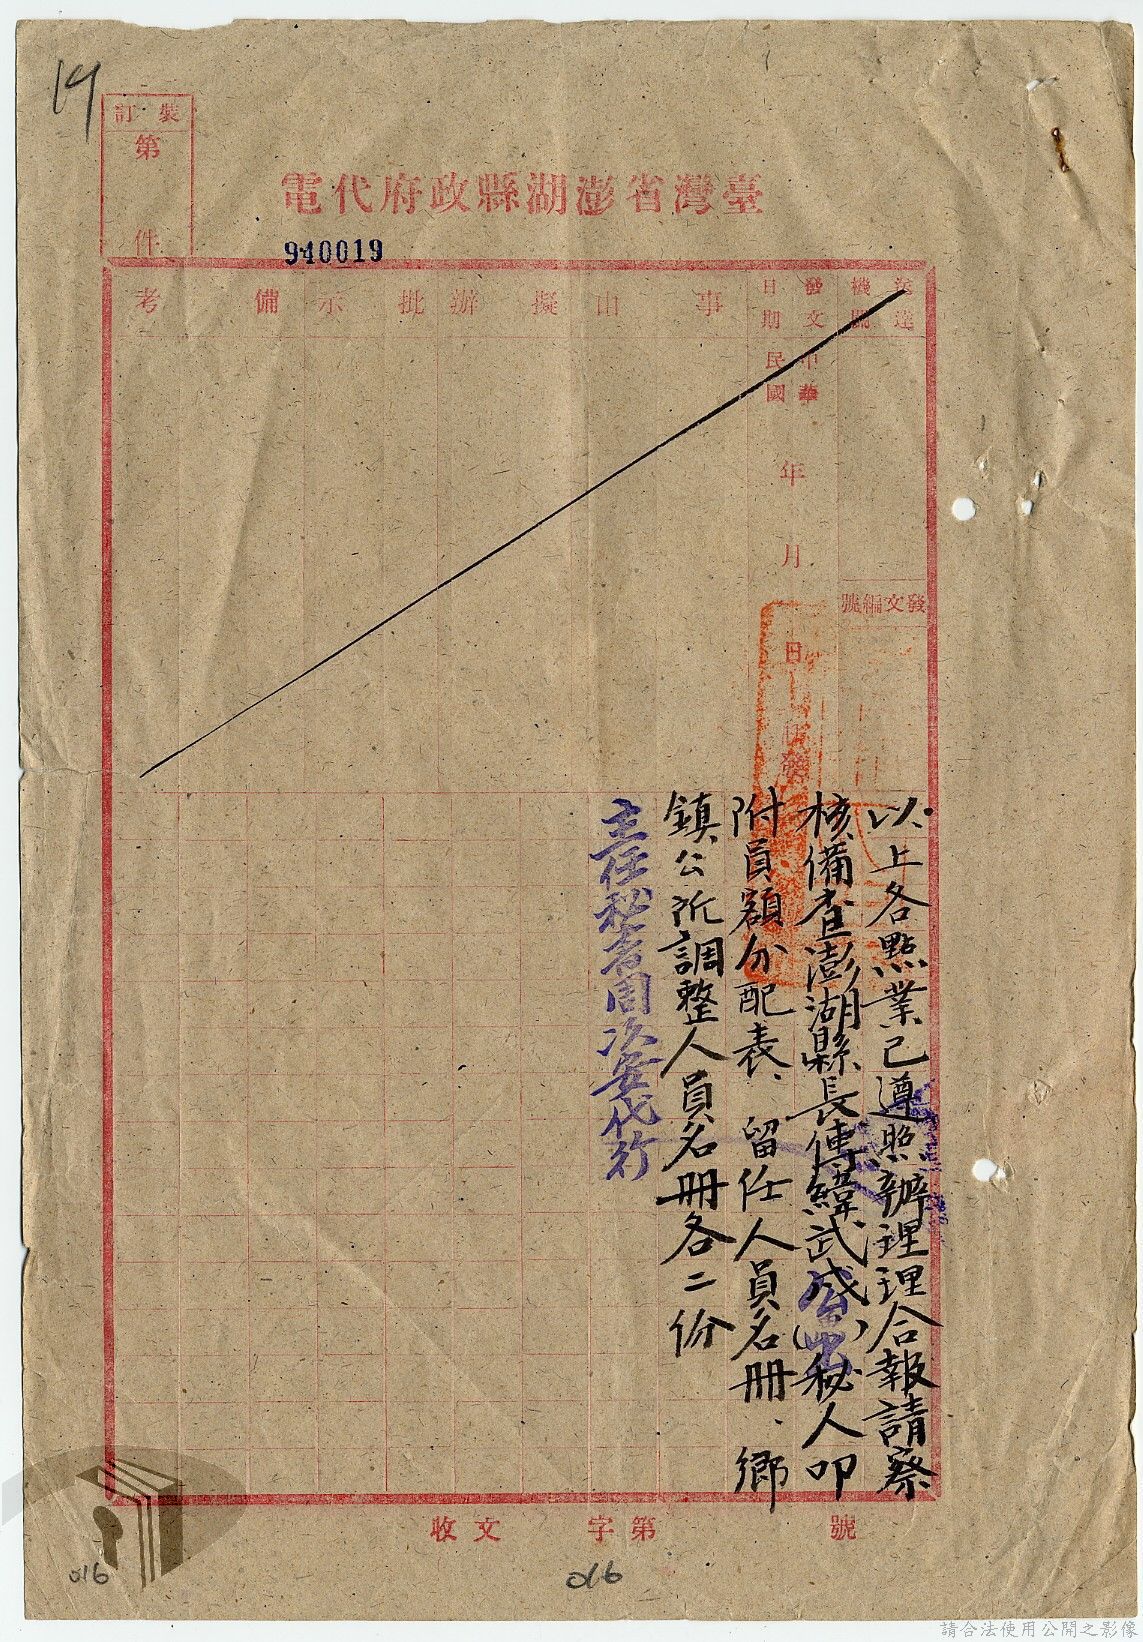 19
裝訂
第
件
臺灣省澎湖縣政府代電
940019
送達機關
發文日期
事由
擬辦
批示
備考
中華民國
年
月
日
發文編號
以上各點業已遵照辦理理合報請察
核備查澎湖縣長傅緯武成( )秘人叩
附員額分配表、留任人員名冊、鄉
鎮公所調整人員名冊各二份
主任秘書周次安代行
收文
字第
號
016
016
請合法使用公開之影像